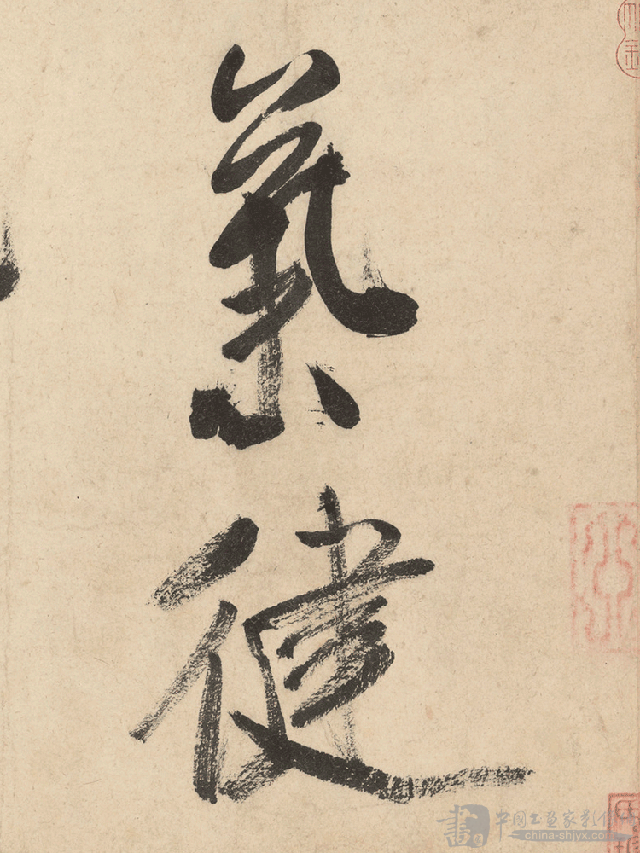 氣健
中国书画家影像网
china-shjyx.com